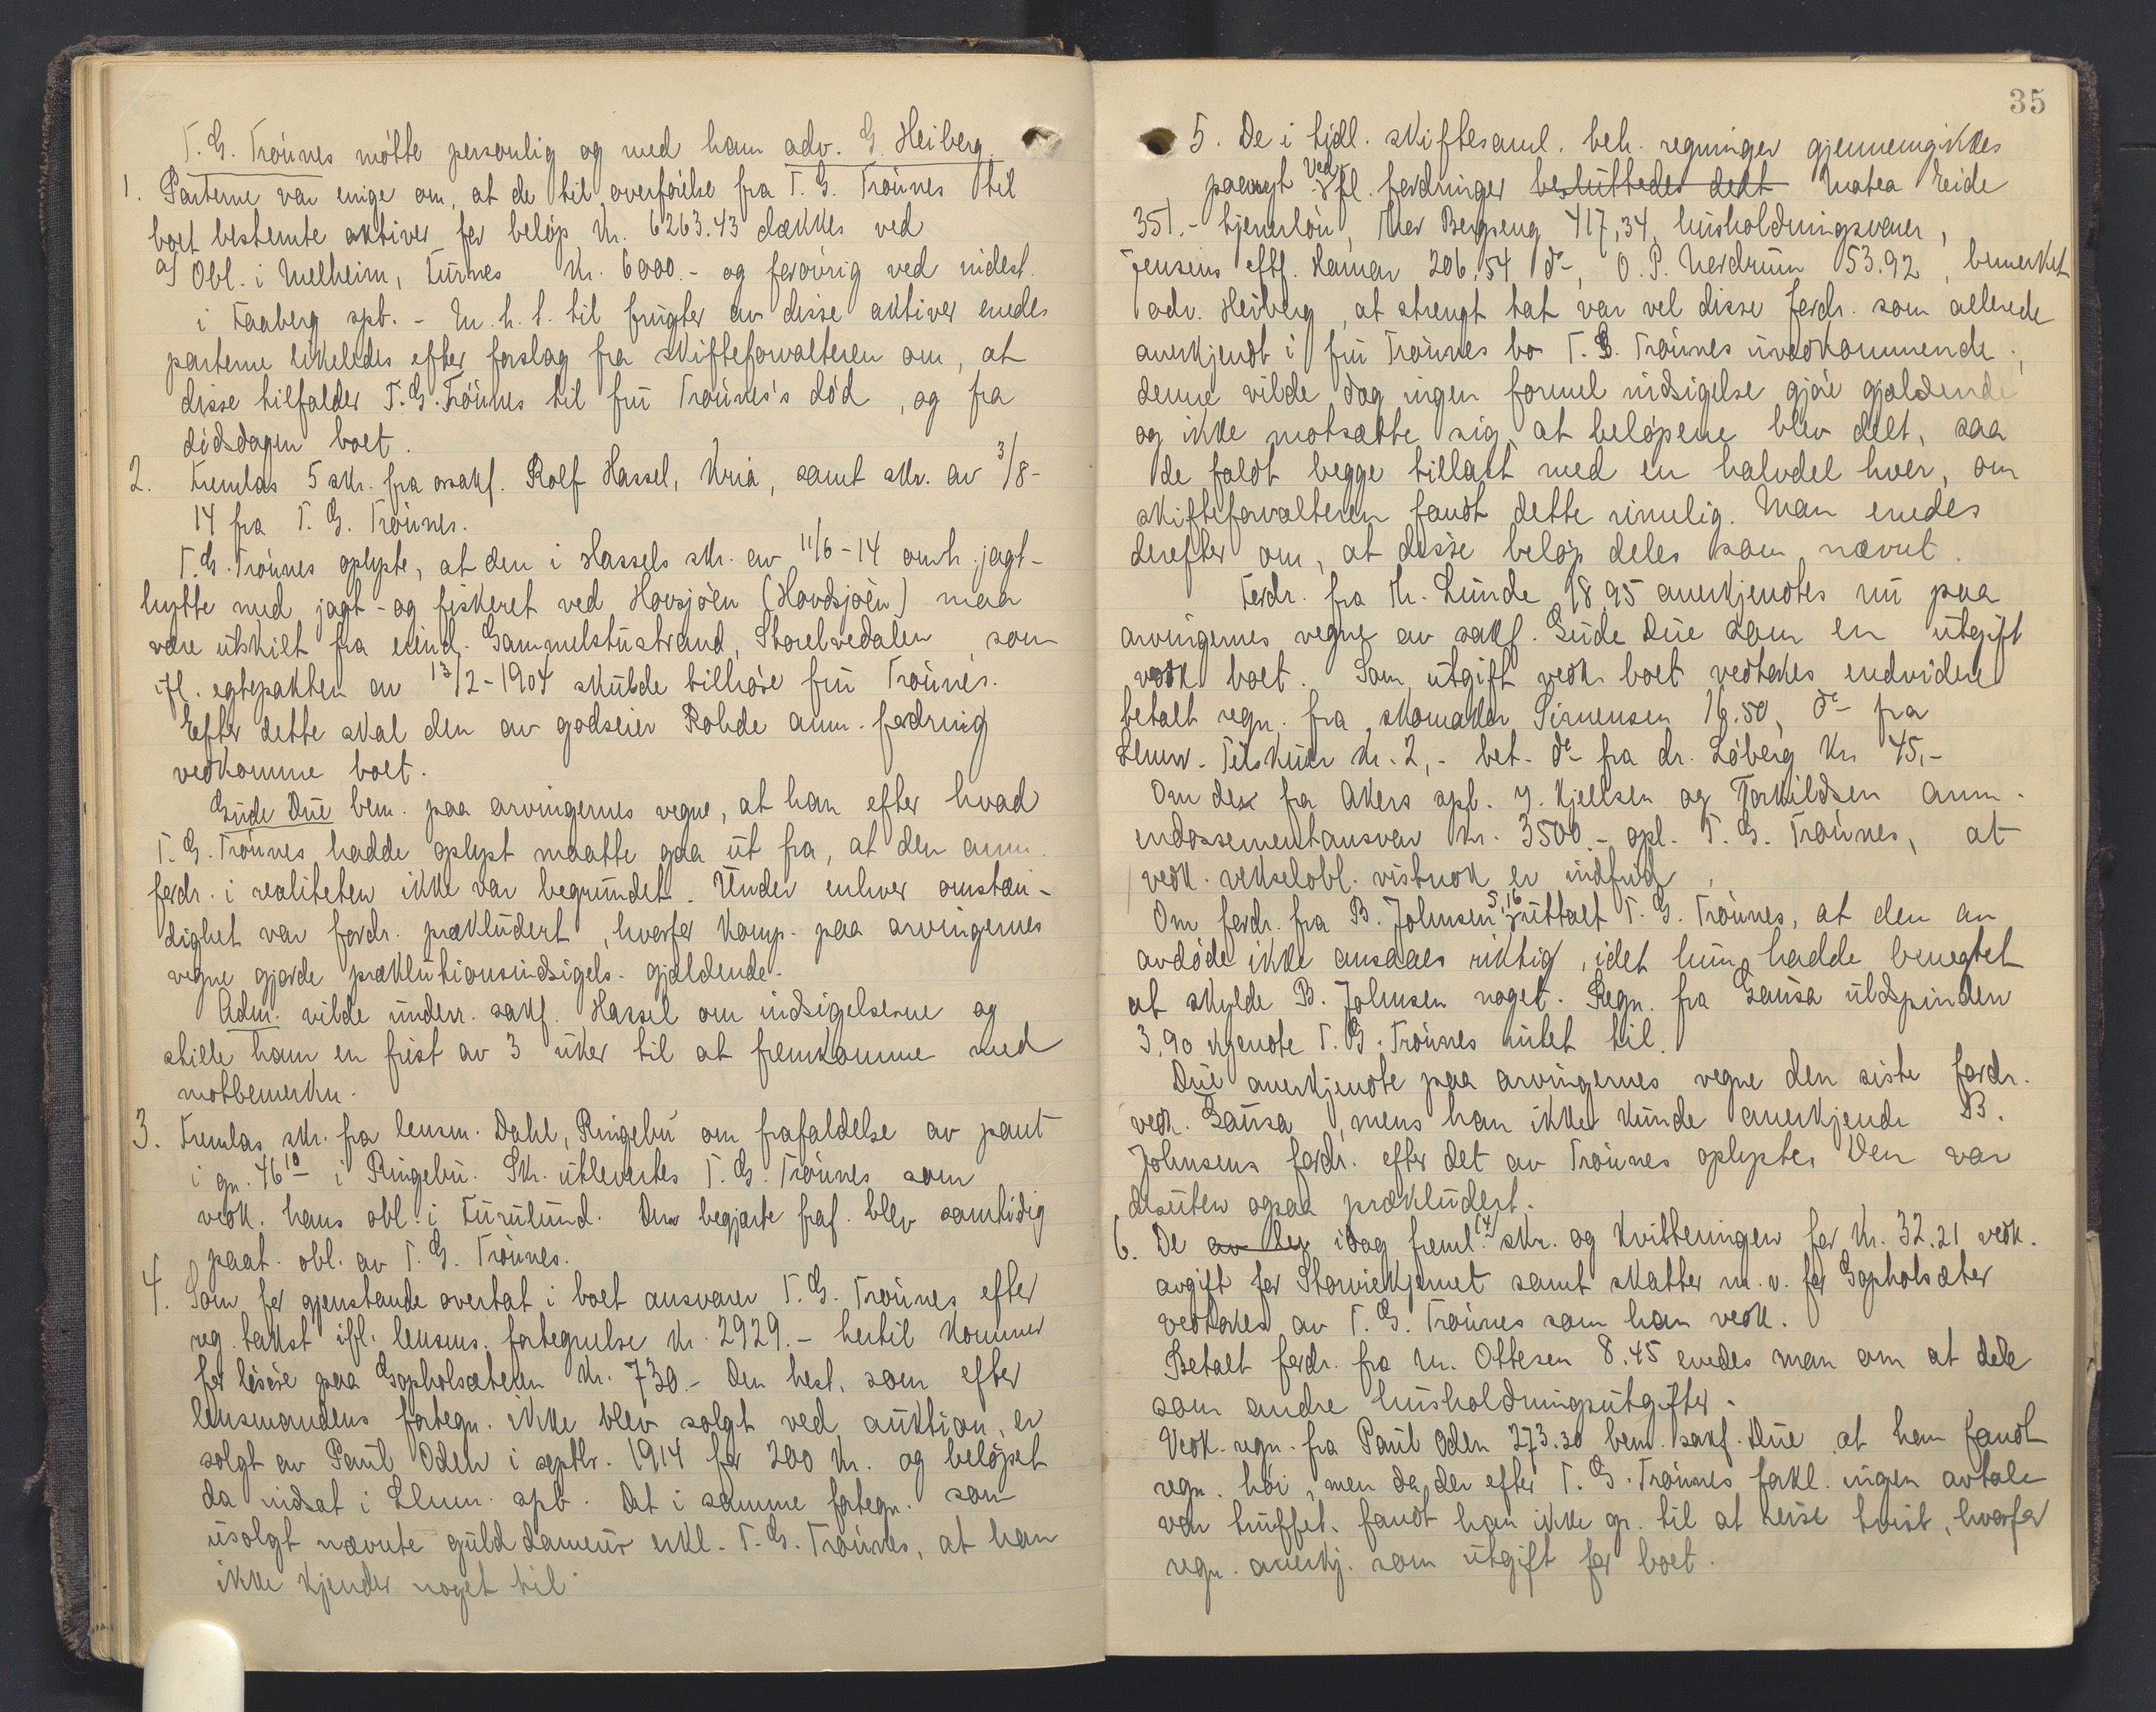 T. G. Trønnes møtte personlig og med ham adv. G. Heiberg.
1. Parterne var enige om, at de til overførelse fra T. G. Trønnes til
boet bestemte aktiver for beløp kr. 6263.43 dækkes ved
a) Obl. i Melheim, Furnes kr. 6000.- og forøvrig ved indest.
i Faaberg spb. - M. h. t. til frugter av disse aktiver enedes
parterne likeledes efter forslag fra skifteforvalteren om, at
disse tilfalder T. G. Trønnes til fru Trønnes's død, og fra
dødsdagen boet.
2. Fremlas 5 skr. fra osakf. Rolf Hassel, Kria, samt skr. av 3/8-
14 fra T. G. Trønnes.
T. G. Trønnes oplyste, at den i Hassels skr. av 11/6-14 omh. jagt-
hytte med jagt- og fiskeret ved Hovsjøen (Hovdsjøen) maa
være utskilt fra eiend. Gammelstustrand, Storelvedalen, som
ifl. egtepakten av 13/2-1904 skulde tilhøre fru Trønnes.
Efter dette skal den av godseier Rohde anm. fordring
vedkomme boet.
Gude Due bem. paa arvingernes vegne, at han efter hvad
T. G. Trønnes hadde oplyst maatte gaa ut fra, at den anm.
fordr. i realiteten ikke var begrundet. Under enhver omstæn-
dighet var fordr. prækludert, hvorfor komp. paa arvingernes
vegne gjorde præklutionsindsigels. gjældende.
Adm. vilde underr. sakf. Hassel om indsigelserne og
stille ham en frist av 3 uker til at fremkomme med
motbemerkn.
3. Fremlas skr. fra lensm. Dahl, Ringebu om frafaldelse av pant
i gn. 46 10 i Ringebu. Skr. utlevertes T. G. Trønnes som
vedk. hans obl. i Furulund. Den begjærte fraf. blev samtidig
paat. obl. av T. G. Trønnes.
4. Som for gjenstande overtat i boet ansvarer T. G. Trønnes efter
reg. takst ifl. lensms. fortegnelse kr. 2929.- hertil kommer
for løsøre paa Gopholsæteren kr. 730.- Den hest, som efter
lensmandens fortegn. ikke blev solgt ved auktion, er
solgt av Paul Oden i septbr. 1914 for 200 kr. og beløpet
da indsat i Lhmr. spb. Det i samme fortegn. som
usolgt nævnte guld dameur erkl. T. G. Trønnes, at han
ikke kjender noget til.
35
5. De i tidl. skiftesaml. beh. regninger gjennemgikkes
paanyt Ved flg. fordringer besluttedes delt Matea Eide
351.- tjenerløn, Mar Bergseng 417,34, husholdningsvarer,
Jensens eftf. Hamar 206.54 do, O. P. Nordrum 53.92, bemerket
adv. Heiberg, at strengt tat var vel disse fordr. som allerede
anerkjendt i fru Trønnes bo T. G. Trønnes uvedkommende;
denne vilde dog ingen formel indsigelse gjøre gjældende
og ikke motsætte sig, at beløpene blev delt, saa
de faldt begge tillast med en halvdel hver, om
skifteforvalteren fandt dette rimelig. Man enedes
derefter om, at disse beløp deles som nævnt.
Fordr. fra Kr. Lunde 18.95 anerkjendtes nu paa
arvingernes vegne av sakf. Gude Due som en utgift
vedk boet. Som utgift vedk. boet vedtokes endvidere
betalt regn. fra skomaker Simensen 16.50, do fra
Lhmr. Tilskuer kr. 2,- bet. do fra dr. Løberg kr 45,-
Om det fra Akers spb. y. Kjellsen og Torkildsen anm.
endossementansvar kr. 3500.- opl. T. G. Trønnes, at
vedk. vekselobl. vistnok er indfrid.
Om fordr. fra B. Johnsen 5,16 uttalt T. G. Trønnes, at den av
avdøde ikke ansaaes riktig, idet hun hadde benegtet
at skylde B. Johnsen noget. Regn. fra Gausa uldspinderi
3.90 kjendte T. G. Trønnes intet til.
Due anerkjendte paa arvingernes vegne den siste fordr.
vedk. Gausa, mens han ikke kunde anerkjende B.
Johnsens fordr. efter det av Trønnes oplyste. Den var
desuten ogsaa prækludert.
6. De av den idag freml. (4) skr. og kvitteringer for kr. 32.21 vedk.
avgift for Storvieskjernet samt skatter m. v. for Gopholsæter
vedtokes av T. G. Trønnes som ham vedk.
Betalt fordr. fra M. Ottesen 8.45 enedes man om at dele
som andre husholdningsutgifter.
Vedk. regn. fra Paul Oden 273.30 bem. sakf. Due at han fandt
regn. høi, men da der efter T. G. Trønnes forkl. ingen avtale
var truffet, fandt han ikke gr. til at reise tvist, hvorfor
regn. anerkj. som utgift for boet.